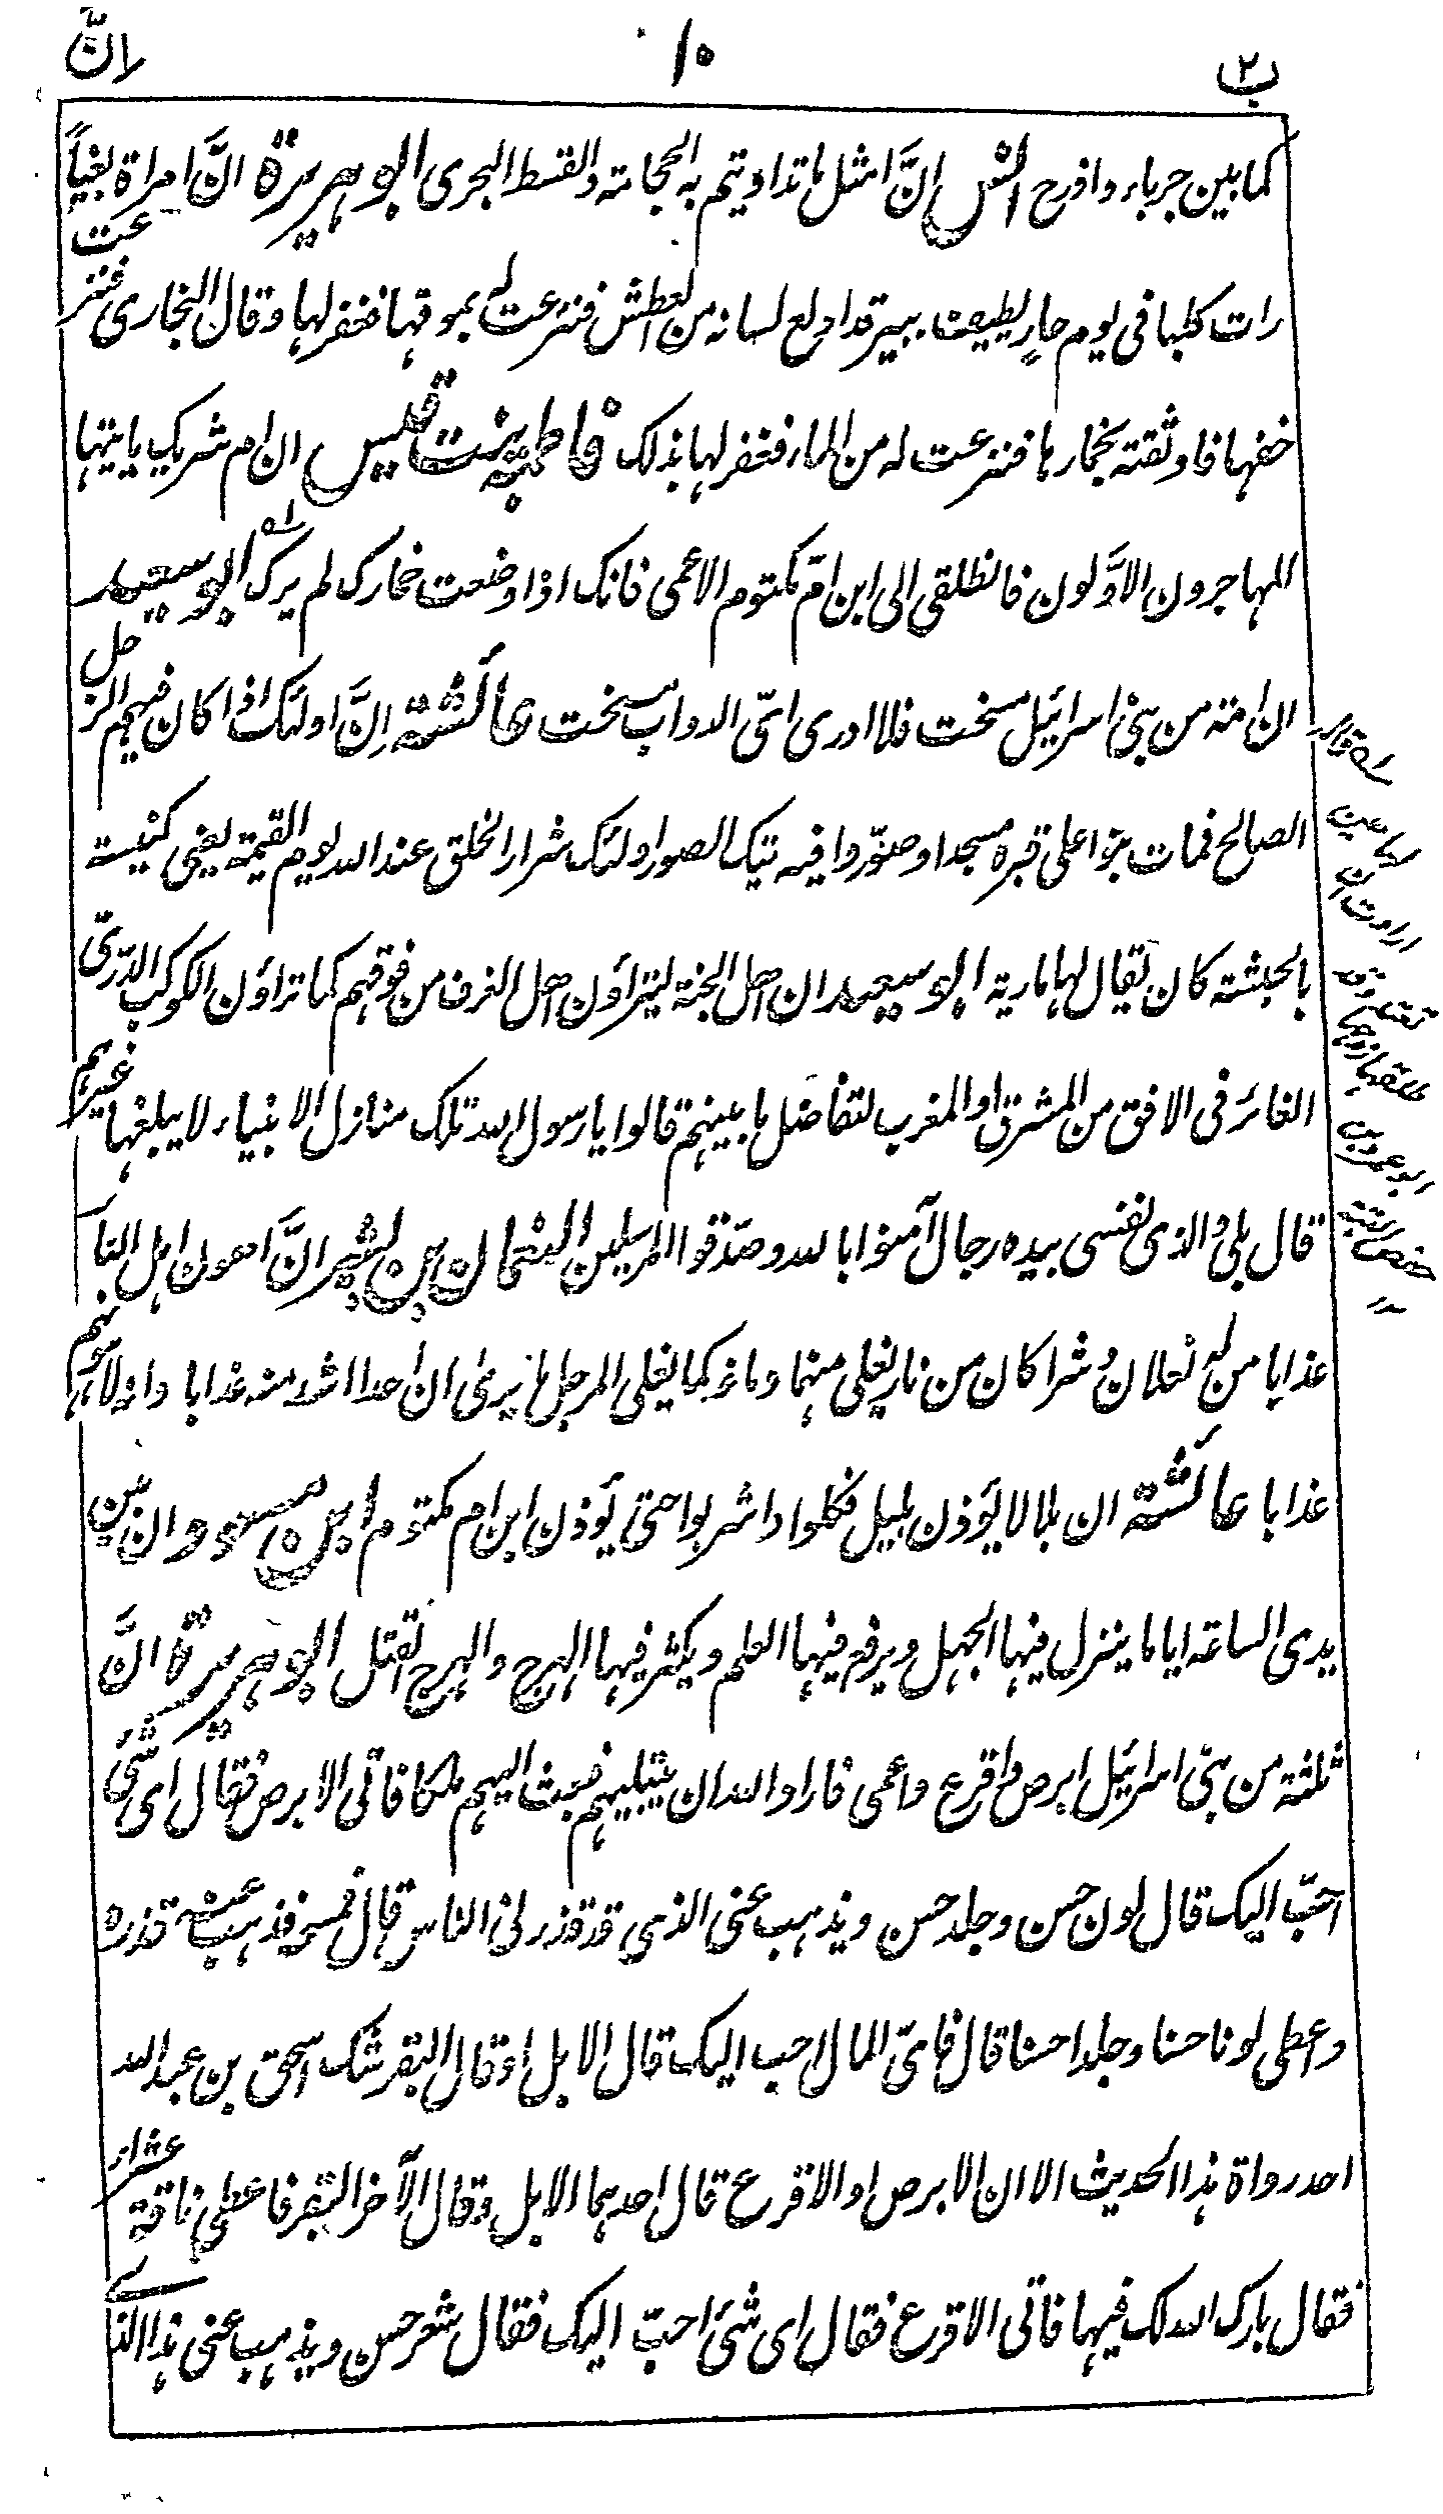 ب٢ ١٠ انّ
كما بين جرباء واذرح انس انَّ امثل ما تداويتم به الحجامة والقسط البحرى ابو هريرة انَّ امراة بغياً
رات كلبا فى يوم حارٍ يطيف ببير قد ادلع لسانه من العطش فنزعت له بموقها فغفر لها وقال البخارى فنزعت
خفها فاوثقته بخمارها فنزعت له من الماء فغفر لها بذلك فاطمة بنت قيس ان ام شريك ياتيها
المهاجرون الاوَّلون فانطلقى الى ابن امّ مكتوم الاعمى فانك اذا وضعت خمارك لم يرك اه ابو سعيد
ان امة من بنى اسرائيل مسخت فلا ادرى اىّ الدواب مسخت عائشة اِنَّ اولئك اذا كان فيهم الرجل
الصالح فمات بنوا على قبره مسجدا وصوّروا فيه تيك الصور اولئك شرار الخلق عند الله يوم القيمة يعنى كنيسة
بالحبشة كان يقال لها مارية ابو سعيد ان اهل الجنة ليتراؤن اهل الغرف من فوقهم كما تراؤن الكوكب الدّرىّ
الغائر فى الافق من المشرق او المغرب لتفاضل ما بينهم قالوا يا رسول الله تلك منازل الانبياء لا يبلغها غيرهم
قال بلى والذى نفسى بيده رجال آمنوا بالله وصدّقوا المرسلين النعمان بن بشير انَّ اهون اهل النار
عذابا من له نعلان وشراكان من نار يغلى منهما دماغه كما يغلى المرجل ما يرى ان احدا اشد منه عذابا وانه لاهونهم
عذابا عائشة ان بلالا يؤذن بليل فكلوا واشربوا حتى يؤذن ابن ام مكتوم ابن مسعود ان بين
يدى الساعة اياما ينزل فيها الجهل ويرفع فيها العلم ويكثر فيها الهرج والهرج القتل ابو هريرة انَّ
ثلثة من بنى اسرائيل ابرص واقرع واعمى فاراد الله ان يبتليهم فبعث اليهم ملكا فاتى الابرص فقال اى شئ
احبّ اليك قال لون حسن وجلد حسن ويذهب عنى الذى قد قذرنى الناس قال فمسحه فذهب عنه قذره
واعطى لونا حسنا وجلدا حسنا قال فاىّ المال احب اليك قال الابل او قال البقر شك اسحق بن عبد الله
احد رواة هذا الحديث الا ان الابرص او الاقرع قال احدهما الابل وقال الآخر البقر فاعطى ناقة عشراء
فقال بارك الله لك فيها فاتى الاقرع فقال اى شئ احبّ اليك فقال شعر حسن ويذهب عنى هذا الذى
اه قاله
لها حين
ارادت ان
تعتد وقد
طلقها زوجها
ابو عمرو بن
حفص